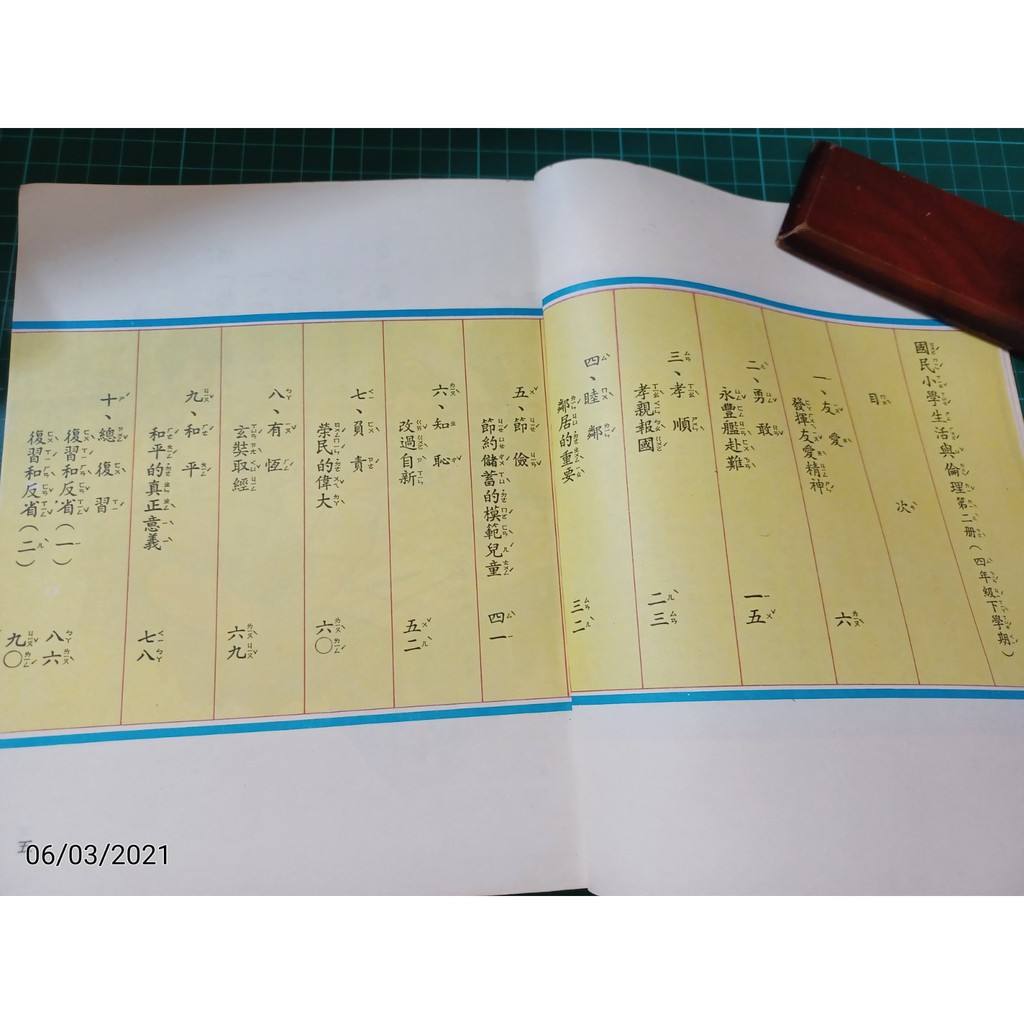 國民小學生活與倫理第二册(四年級下學期)
目 次
一、友 愛
發揮友愛精神 六
二、勇 敢
永豐艦赴難 一五
三、孝 順
孝親報國 二三
四、睦 鄰
鄰居的重要 三二
五、節 儉
節約儲蓄的模範兒童 四一
六、知 恥
改過自新 五二
七、負 責
榮民的偉大 六〇
八、有 恆
玄奘取經 六九
九、和 平
和平的真正意義 七八
十、總 復 習
復習和反省(一) 八六
復習和反省(二) 九〇
五
06/03/2021